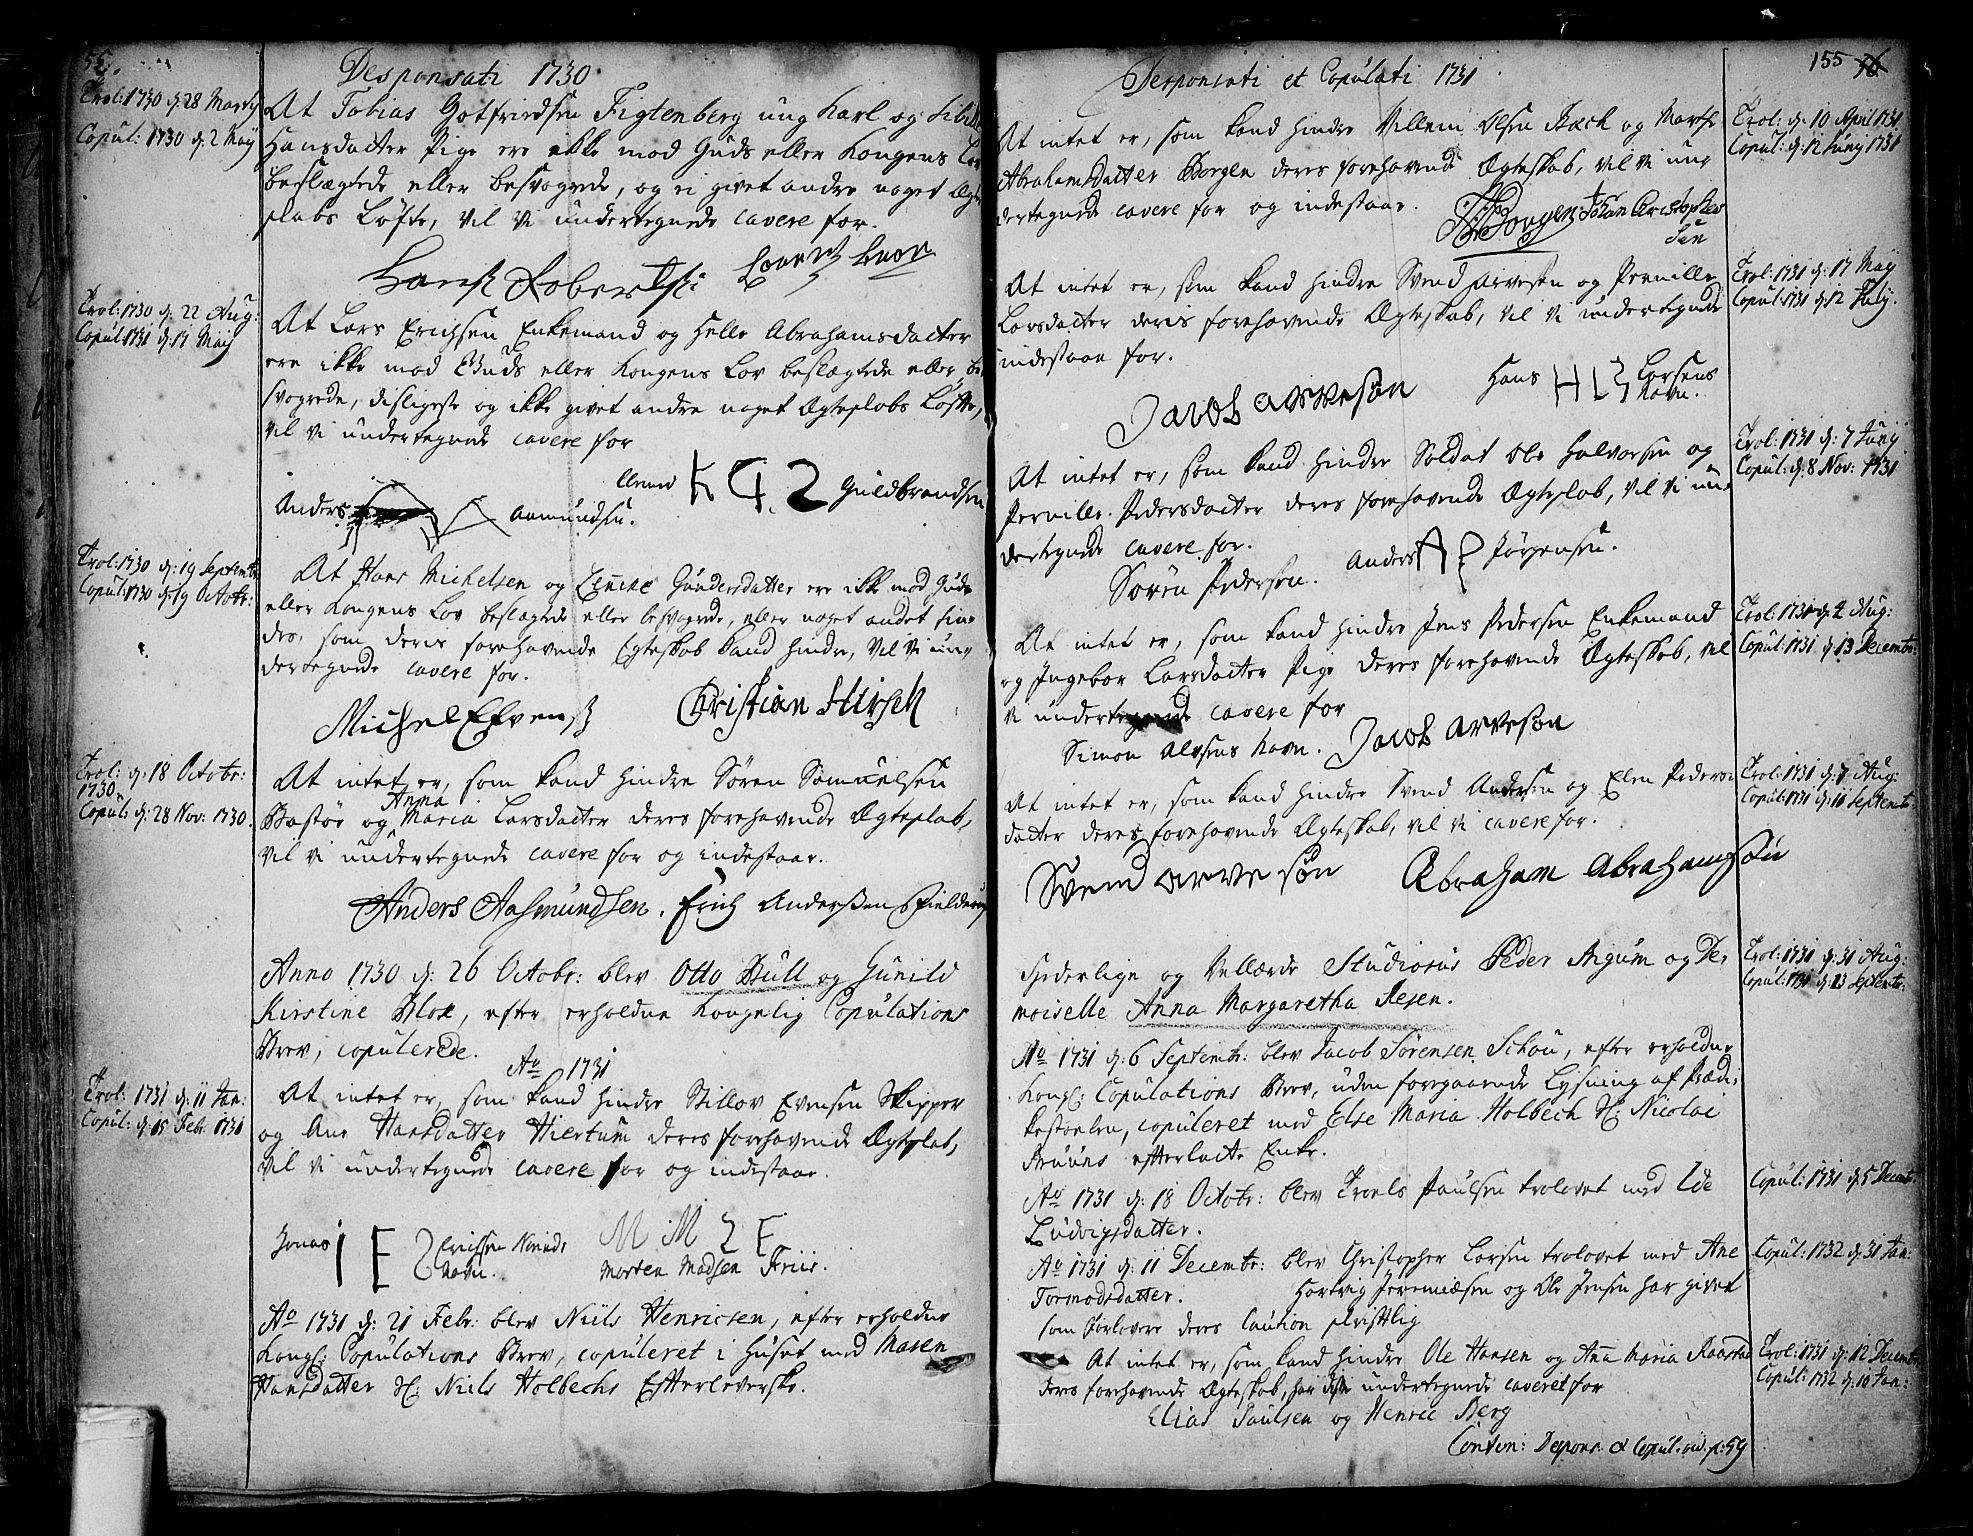 Desponsati 1730
Trol: 1730 d. 28 Martij
Copul: 1730 d. 2 Maij
At Tobias Gotfriedsen Figtenberg ung Karl og
Hansdatter Pige ere ikke mod Guds eller Kongens Lov
beslægtede eller besvogrede, og ei givet andre noget Egte
skabs Løfte, vil vi undertegnede cavere for.
Trol: 1730 d. 22 Aug:
Copul: 1731 d. 17 Maij
At Lars Erichsen Enkemand og Helle Abrahamsdatter
ere ikke mod Guds eller Kongens Lov beslægtede eller be
svogrede, disligeste og ikke givet andre noget Ægteskabs Løfte,
vil vi undertegnede cavere for
K G S Guldbrandsen
Anders Aamundsen.
Trol: 1730 d. 19 Septembr
Copul: 1730 d. 19 Octobr:
At Hans Michelsen og Lenike Gundersdatter ere ikke mod Guds
eller Kongens Lov beslægtede eller besvogrede, eller noget andet fin
des, som deres forehavende Egteskab kand hindre, vil vi un
dertegnede cavere for.
Michel Efvens Christian Hirsch
Trol: d. 18 Octobr:
1730.
Copul: d. 28 Nov: 1730.
At intet er, som kand hindre Søren Samuelsen
Anna
Bastøe og Maria Larsdatter deres forehavende Ægteskab,
vil vi undertegnede cavere for og indestaae.
Anders Aasmundsen. Erich Anderssen Fielderup
Anno 1730 d. 26 Octobr: blev Otto Bull og Gunild
Kirstine Blox, efter erholdne Kongelig Copulations
Brev, copulerede.
Ao 1731
Trol: 1731 d. 11 Jan:
Copul: d. 15 Febr. 1731
At intet er, som kand hindre Stillov Evensen Skipper
og Ane Hansdatter Hiertum deres forehavende Ægteskab,
vil vi undertegnede cavere for og indestaae.
Jonas I E S Erichsen
Navn.
M M S F
Morten Madsen Friis.
Ao 1731 d. 21 Febr: blev Niils Henricsen, efter erholdne
Kongl: Copulations Brev, copuleret i Huset med Maren
Hansdatter Sl: Niels Holbechs Efterleverske.
155 76
Desponsati et Copulati 1731
Trol: d. 10 April 1731
Copul: d. 12 Junij 1731
At intet er, som kand hindre Villem Olsen Bæch og Marthe
Abrahamsdatter Borgen deres forehavende Ægteskab, vil vi un
dertegnede cavere for og indestaae.
Borgen Johan Christopher
sen
Trol: 1731 d. 17 Maij
Copul: 1731 d. 12 Julij.
At intet er, som kand hindre Svend Arvesen og Pernille
Larsdatter deris forehavende Ægteskab, vil vi undertegnede
indestaae for.
Jacob Arveson Hans H L S Larsens
Navn.
Trol: 1731 d. 7 Junij
Copul: d. 8 Nov: 1731
At intet er, som kand hindre Soldat Ole Halvorsen og
Pernille Pedersdatter deres forehavende Ægteskab, vil vi un
dertegnede cavere for.
Søren Pedersen. Anders Jörgensen.
Trol: 1731 d. 2 Aug:
Copul: 1731 d. 13 Decembr:
At intet er, som kand hindre Jens Pedersen Enkemand
og Ingebor Larsdatter Pige deres forehavende Ægteskab, vil
vi undertegnede cavere for
Simon Navn. Jacob Arveson
Trol: 1731 d. 7 Aug:
Copul: 1731 d. 11 Septembr.
At intet er, som kand hindre Svend Andersen og Elen Peders
datter deres forehavende Ægteskab, vil vi cavere for.
Svend Arveson Abraham Abrahamsøn
Trol: 1731 d. 31 Aug:
Copul: 1731 d. 13 Septembr:
Hæderlige og Vellærde Studiosus Peder Aigum og De
moiselle Anna Margaretha Resen.
Ao 1731 d. 6 Septembr: blev Jacob Sørensen Schou, efter erholdne
Kongl: Copulations Brev, uden foregaaende Lysning af Prædi
kestoelen, copuleret med Else Maria Holbech Sl: Nicolai
Struuns efterladte Enke.
Ao 1731 d. 18 Octobr: blev Troels Paulsen trolovet med Ide
Ludvigsdatter.
Copul: 1731 d. 5 Decembr.
Ao 1731 d. 11 Decembr: blev Christopher Larsen trolovet med Ane
Tormodsdatter. Hartvig Jeremiæsen og Ole Jensen har givet
som Forlovere deres Caution skriftlig
Copul: 1732 d. 31 Jan:
Trol: 1731 d. 12 Decembr
Copul: 1732 d. 10 Jan:
At intet er, som kand hindre Ole Hansen og Anna Maria Raastad
deres forehavende Ægteskab, har disse undertegnede caveret for
Elias Paulsen og Henric Berg
Contin: Despons. & Copul. vid. p. 59